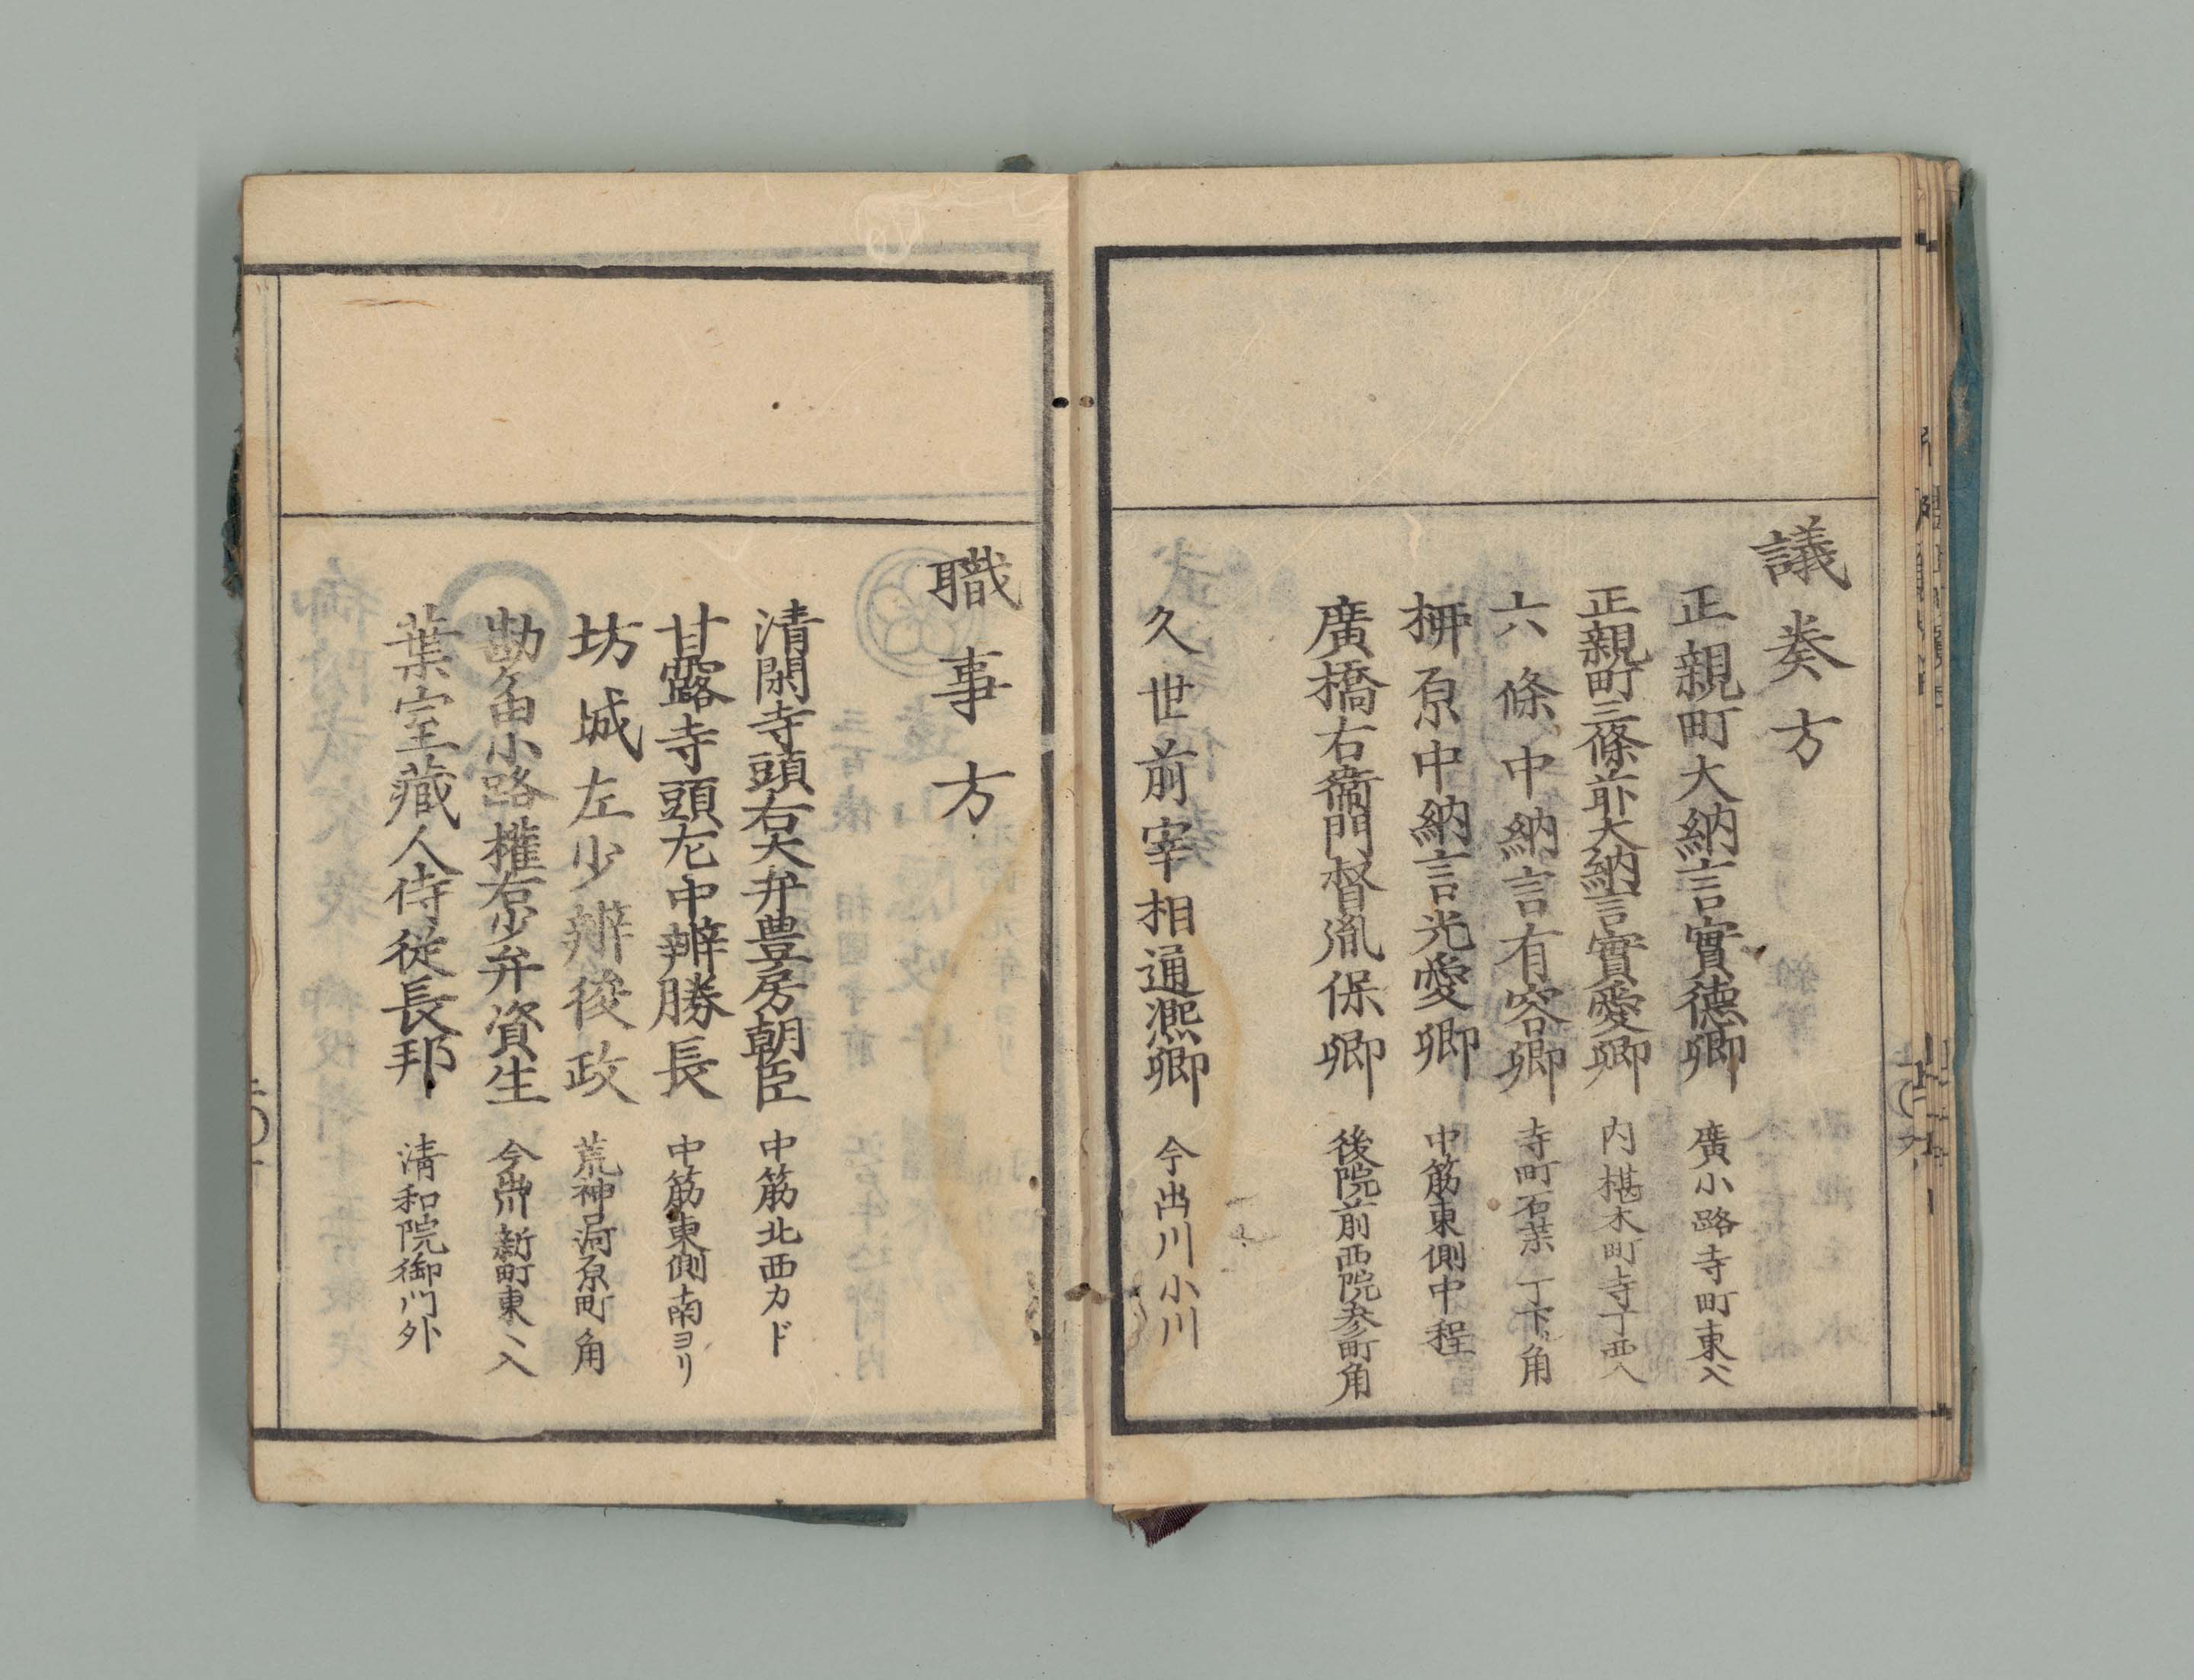 議奏方
正親町大納言實德卿 廣小路寺町東ヘ入
正親町三條前大納言實愛卿 内椹木町寺丁西入
六條中納言有容卿 寺町石薬丁下ル角
栁原中納言光愛卿 中筋東側中程
廣橋右衞門督胤保卿 後院前西院参町角
久世前宰相通凞卿 今出川小川
職事方
清閑寺頭右大弁豊房朝臣 中筋北西カド
甘露寺頭左中辨勝長 中筋東側南ヨリ
坊城左少辨俊政 荒神河原町角
勘ケ由小路權右少弁資生 今出川新町東ヘ入
葉室藏人侍従長邦 清和院御門外